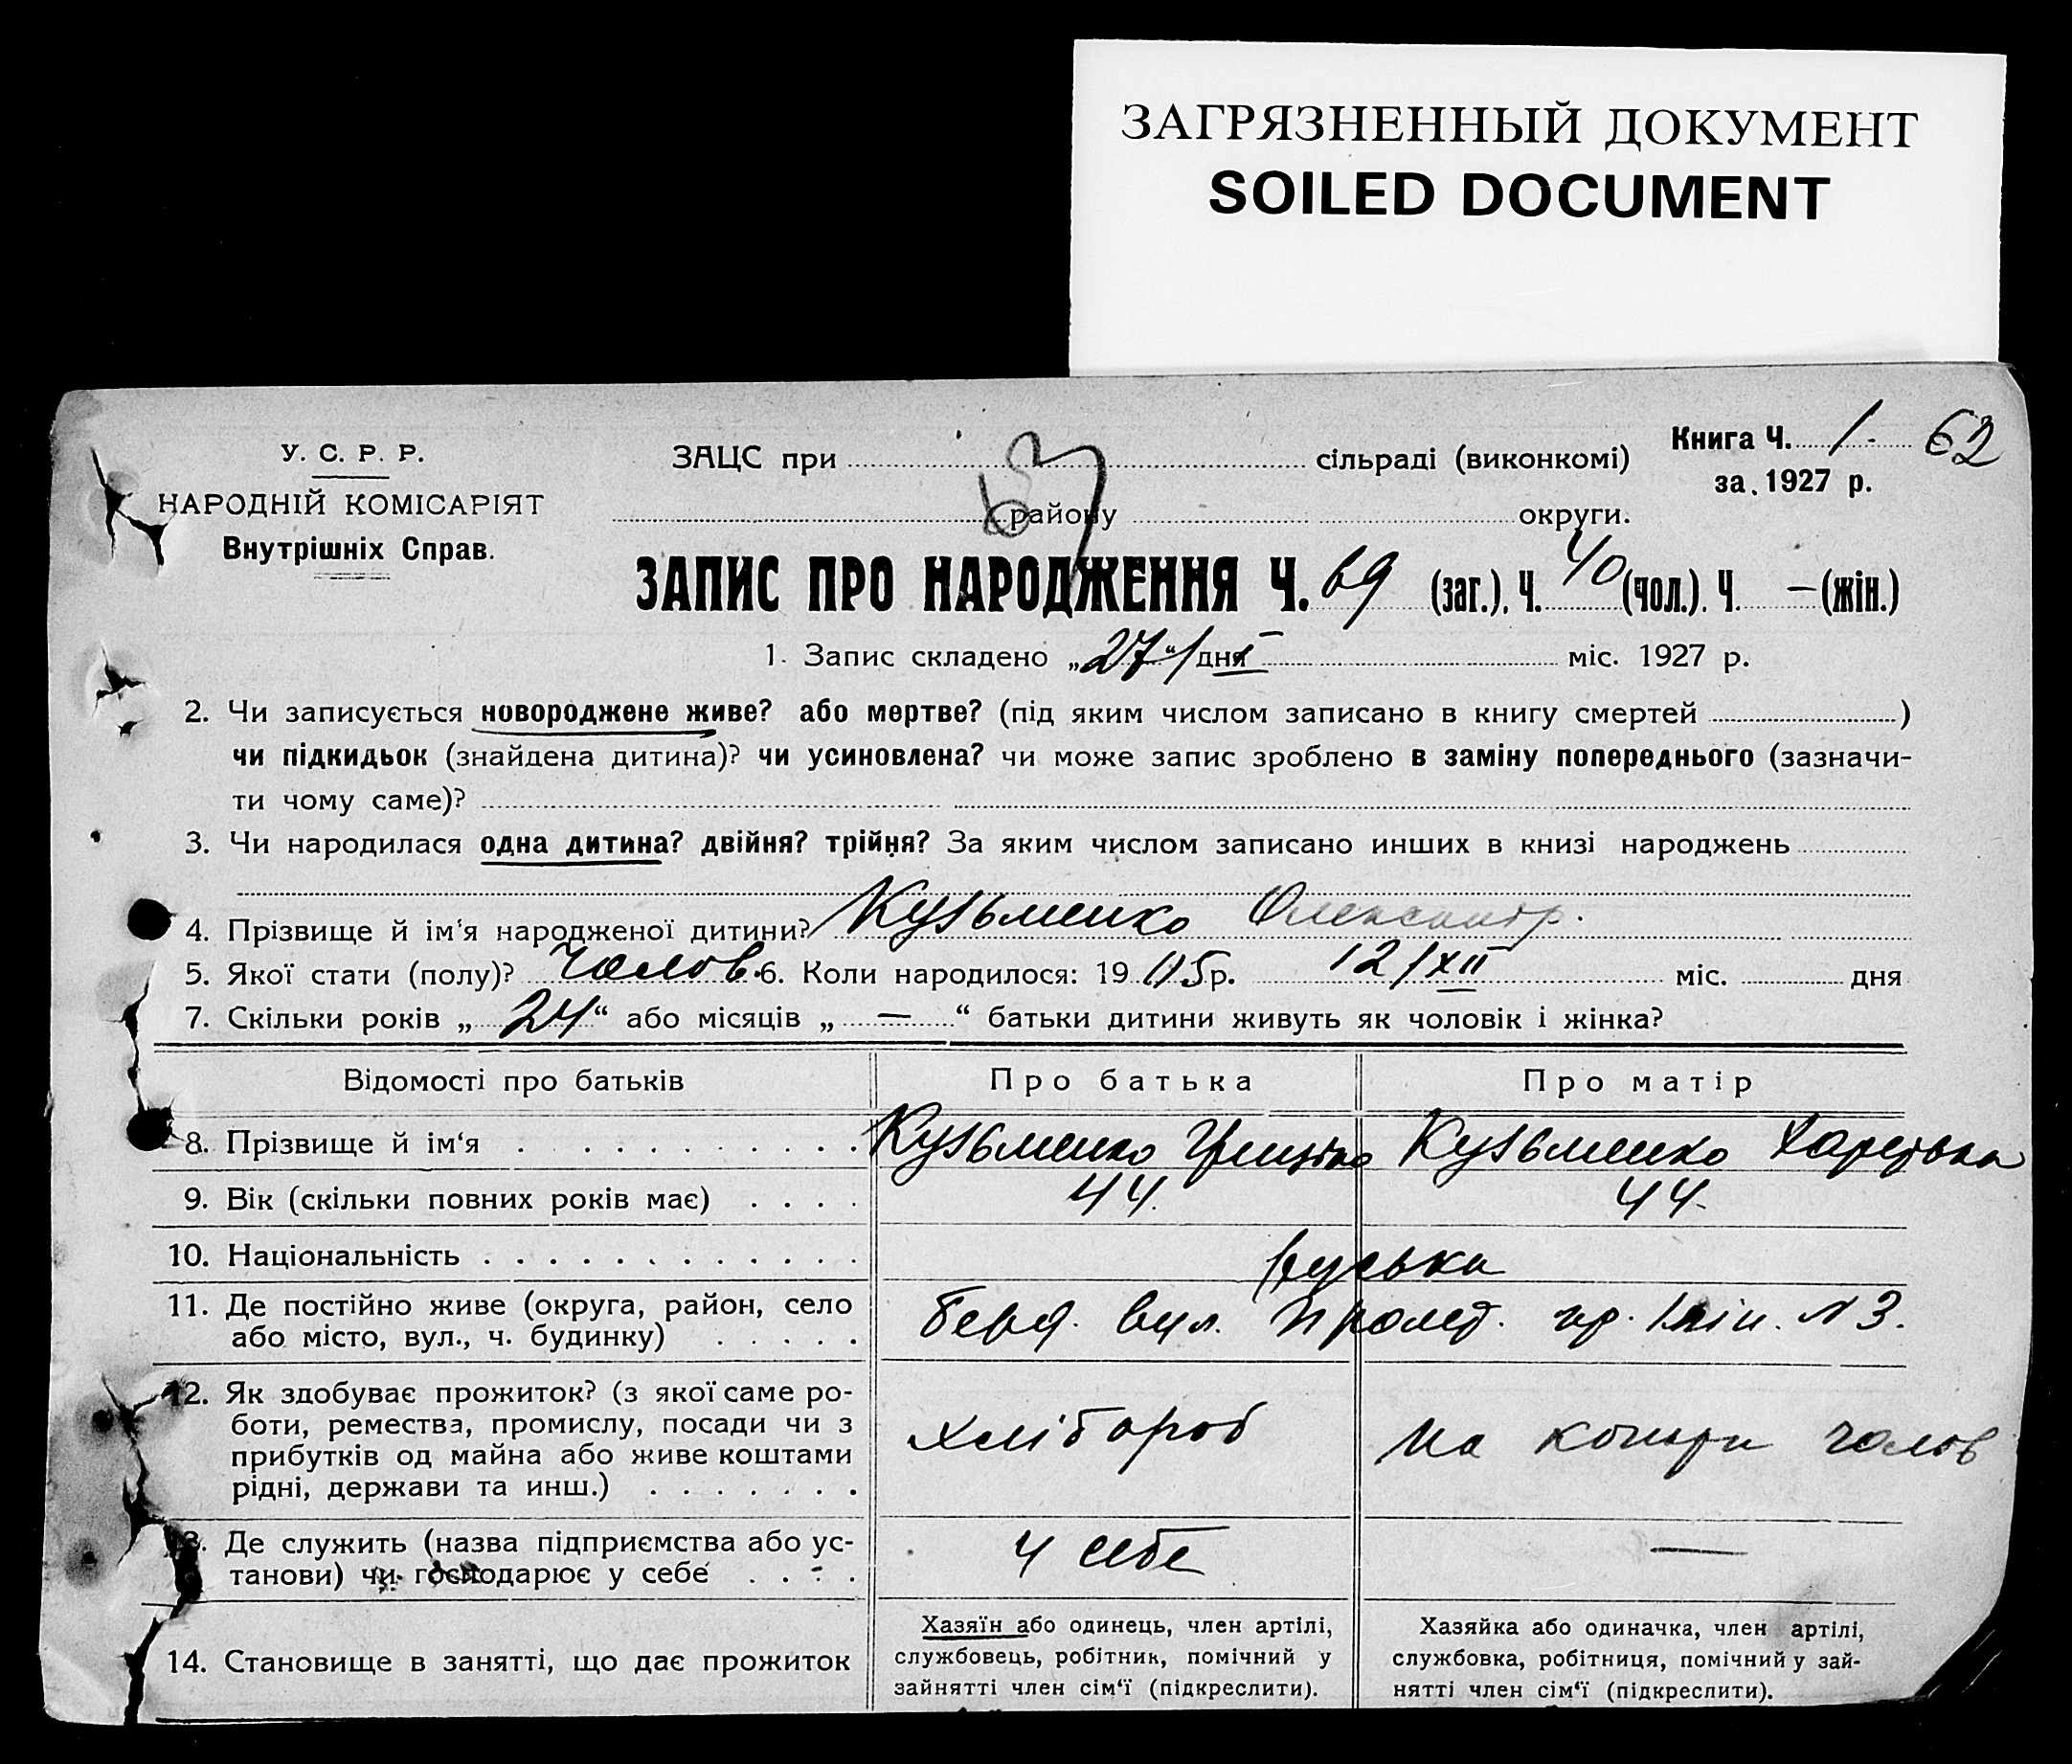 ЗАГРЯЗНЕННЫЙ ДОКУМЕНТ
SOILED DOCUMENT
У. С. Р. Р.
НАРОДНІЙ КОМІСАРІЯТ
Внутрішніх Справ.
ЗАЦС при сільраді (виконкомі)
району округи.
Книга Ч. 1 62
за 1927 р.
ЗАПИС ПРО НАРОДЖЕННЯ Ч. 69 (заг.). Ч. 40 (чол.). Ч. — (жін.)
1. Запис складено „27“ дня міс. 1927 р.
2. Чи записується новороджене живе? або мертве? (під яким числом записано в книгу смертей )
чи підкидьок (знайдена дитина)? чи усиновлена? чи може запис зроблено в заміну попереднього (зазначи-
ти чому саме)?
3. Чи народилася одна дитина? двійня? трійня? За яким числом записано инших в книзі народжень
4. Прізвище й ім‘я народженої дитини? Кузьменко Олександр.
5. Якої стати (полу)? Чолов. 6. Коли народилося: 19 05 р. 12/XII міс. дня
7. Скільки років „24“ або місяців „—“ батьки дитини живуть як чоловік і жінка?
Відомості про батьків Про батька Про матір
8. Прізвище й ім‘я Кузьменко Грицько Кузьменко
9. Вік (скільки повних років має) 44. 44.
10. Національність руська
11. Де постійно живе (округа, район, село
або місто, вул., ч. будинку)
Берд. вул. Пролет. № 3.
12. Як здобуває прожиток? (з якої саме ро-
боти, ремества, промислу, посади чи з
прибутків од майна або живе коштами
рідні, держави та инш.)
хлібороб на кошти чолов
13. Де служить (назва підприємства або ус-
танови) чи господарює у себе
у себе —
14. Становище в занятті, що дає прожиток
Хазяїн або одинець, член артілі,
службовець, робітник, помічний у
зайнятті член сім‘ї (підкреслити).
Хазяйка або одиначка, член артілі,
службовка, робітниця, помічний у зай-
нятті член сім‘ї (підкреслити).